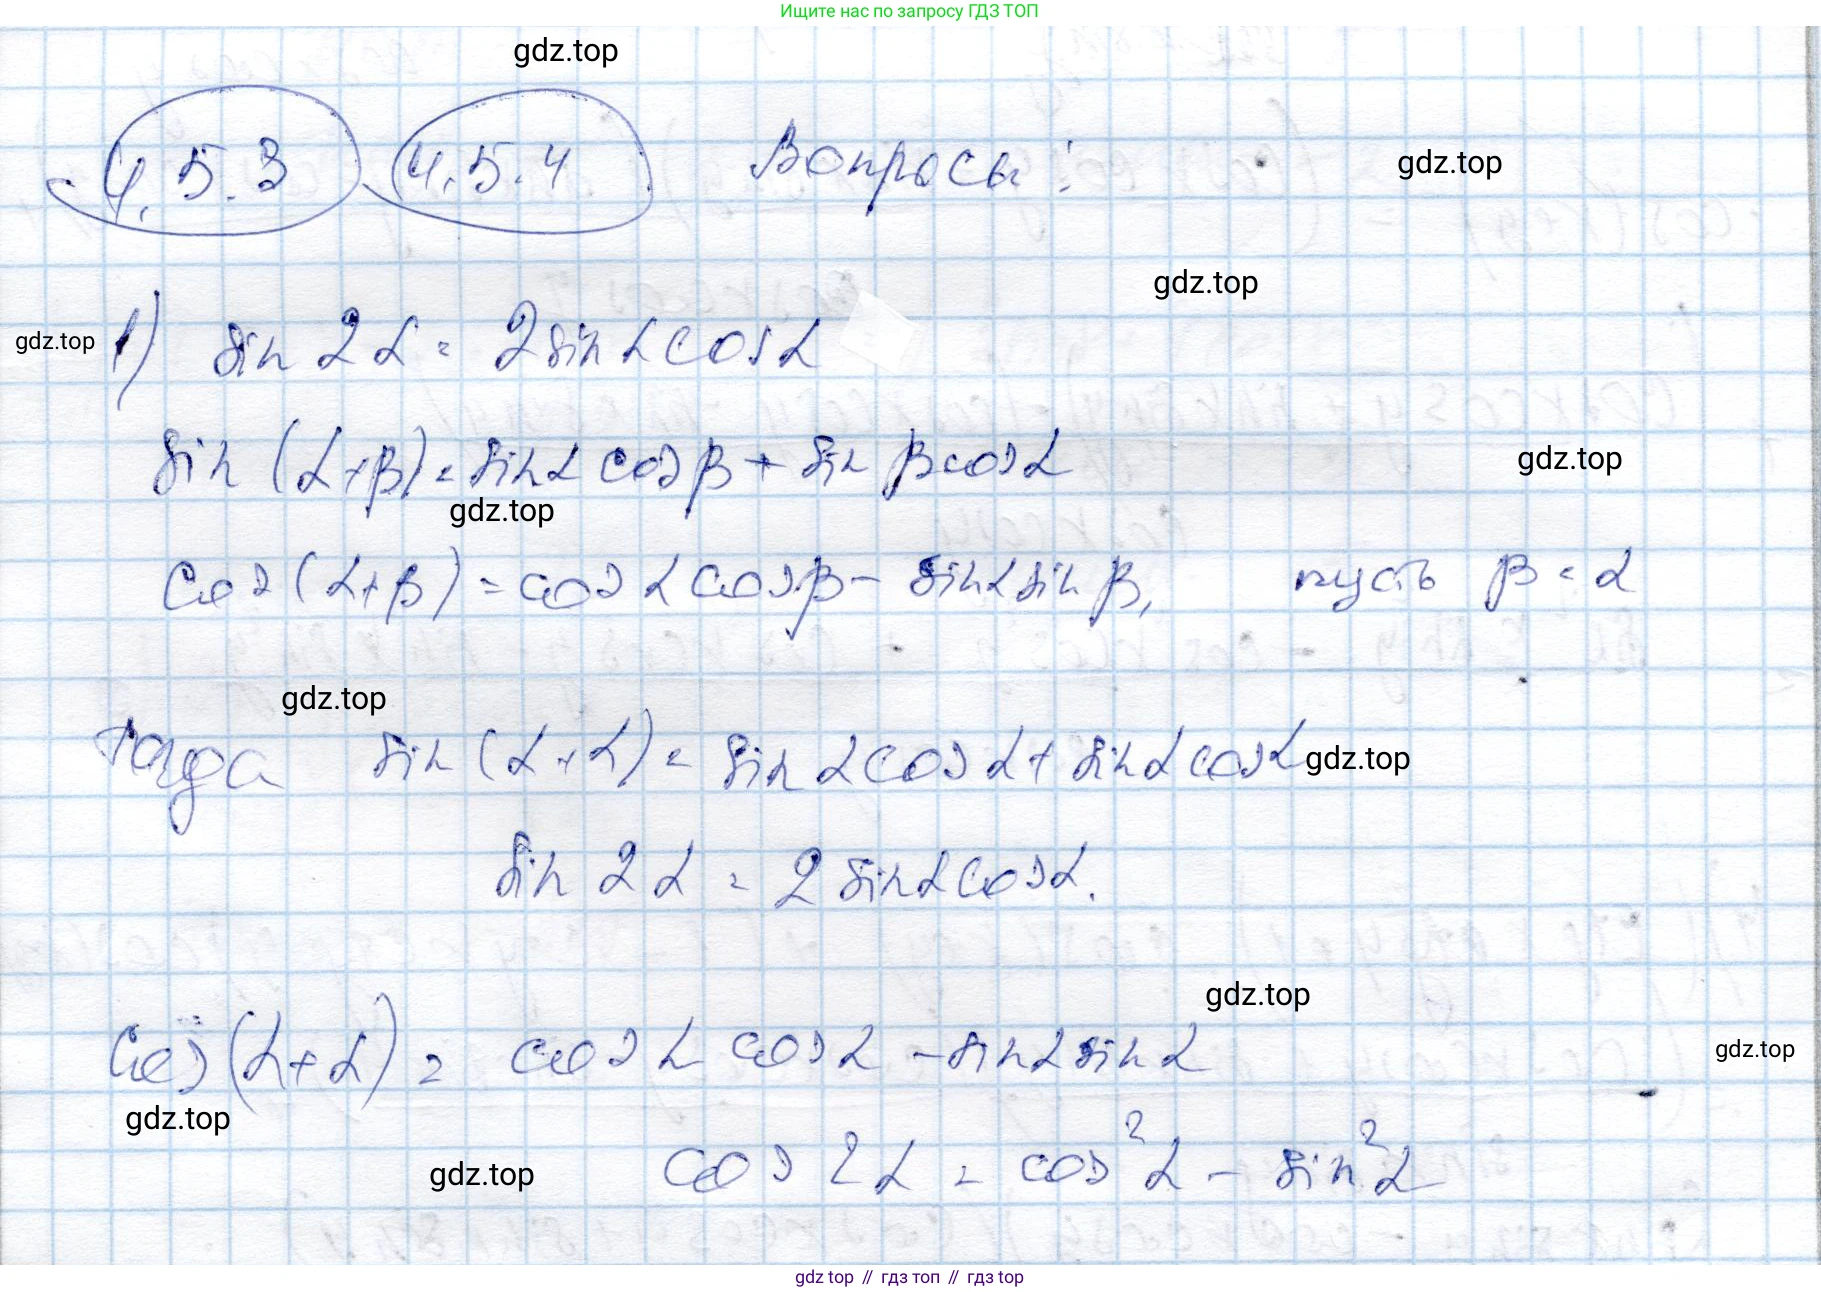 Ищите нас по запросу ГДЗ ТОП
gdz.top
4.5.3 4.5.4 Вопросы:
gdz.top
gdz.top
gdz.top
1) sin 2α = 2 sin α cos α
sin (α+β) = sin α cos β + sin β cos α
gdz.top
gdz.top
cos (α+β) = cos α cos β - sin α sin β, пусть β = α
gdz.top
тогда sin (α+α) = sin α cos α + sin α cos α
gdz.top
sin 2α = 2 sin α cos α.
gdz.top
cos (α+α) = cos α cos α - sin α sin α
gdz.top
gdz.top
gdz.top
cos 2α = cos² α - sin² α
gdz top // гдз топ // gdz top